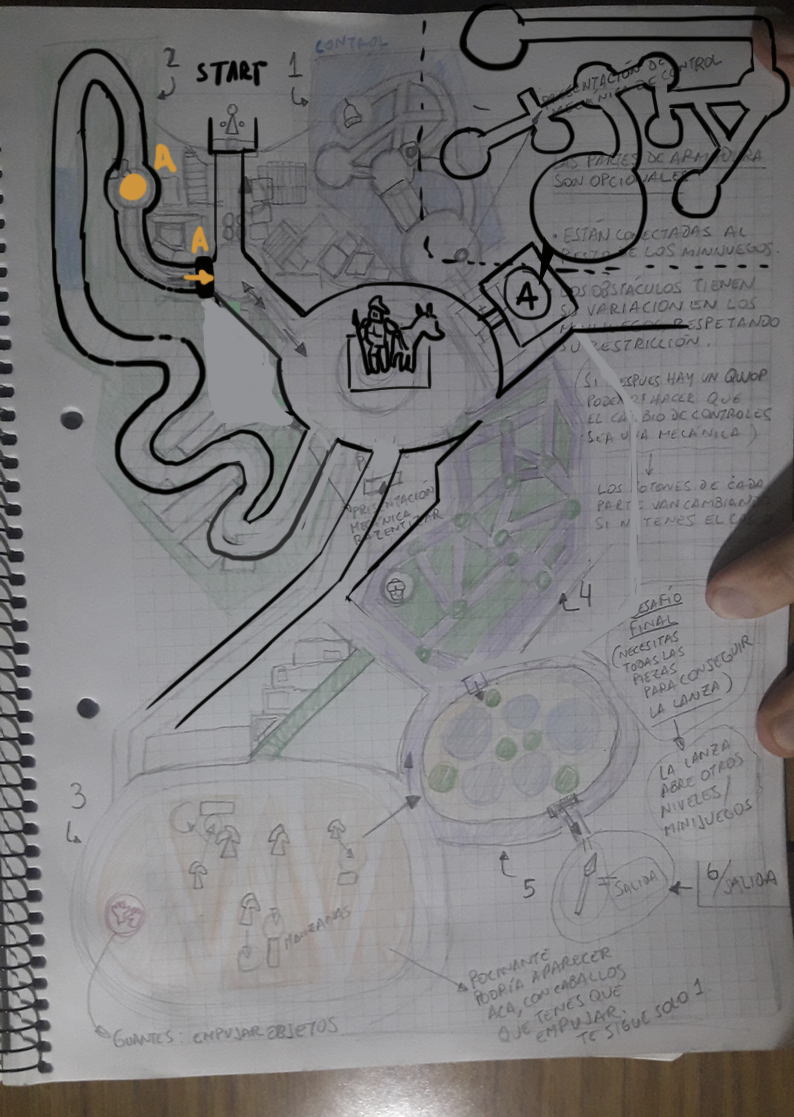 2
START
1
CONTROL
A
A
PRESENTACIÓN DE
MECÁNICA DE CONTROL
LAS PARTES DE ARMADURA
SON OPCIONALES
• ESTÁN CONECTADAS AL
RESTO DE LOS MINIJUEGOS.
4
LOS OBSTACULOS TIENEN
SU VARIACIÓN EN LOS
MINIJUEGOS RESPETANDO
SU RESTRICCIÓN.
(SI DESPUES HAY UN QWOP
PODEMOS HACER QUE
EL CAMBIO DE CONTROLES
SEA UNA MECÁNICA)
LOS BOTONES DE CADA
PARTE VAN CAMBIANDO
SI NO TENES EL
PRESENTACION
MECÁNICA
RALENTIZAR
4
DESAFÍO
FINAL
(NECESITAS
TODAS LAS
PIEZAS
PARA CONSEGUIR
LA LANZA)
LA LANZA
ABRE OTROS
NIVELES/
MINIJUEGOS
3
5
= SALIDA
6/
SALIDA
MANZANAS
ROCINANTE
PODRÍA APARECER
ACA, CON CABALLOS
QUE TENES QUE
EMPUJAR.
TE SIGUE SOLO 1
GUANTES: EMPUJAR OBJETOS